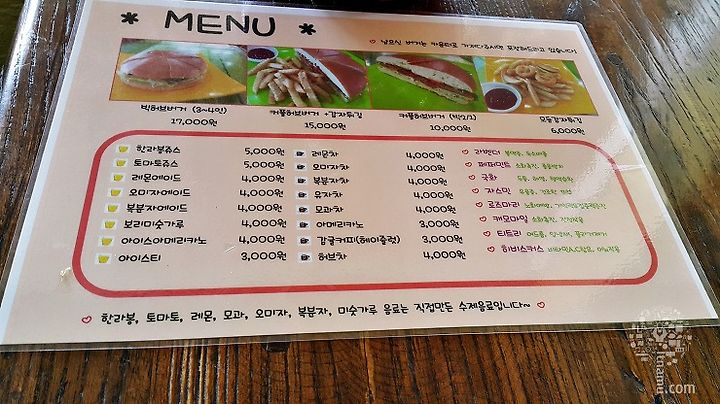 * MENU *
♡ 남으신 버거는 카운터로 가져다주시면 포장해드리고 있습니다!
빅허브버거 (3~4인)
17,000원
커플허브버거 +감자튀김
15,000원
커플허브버거 (빅1/2)
10,000원
모듬감자튀김
6,000원
한라봉쥬스 5,000원
토마토쥬스 5,000원
레몬에이드 4,000원
오미자에이드 4,000원
복분자에이드 4,000원
보리미숫가루 4,000원
아이스아메리카노 4,000원
아이스티 3,000원
레몬차 4,000원
오미자차 4,000원
복분자차 4,000원
유자차 4,000원
모과차 4,000원
아메리카노 3,000원
감귤커피(헤이즐럿) 3,000원
허브차 4,000원
♡ 라벤더 불면증, 두피비듬
♡ 페퍼민트 소화촉진,
♡ 국화 두통,
♡ 자스민 우울증,
♡ 로즈마리 노화예방,
♡ 캐모마일 소화촉진,
♡ 티트리 여드름,
♡ 히비스커스 비타민A,C
♡ 한라봉, 토마토, 레몬, 모과, 오미자, 복분자, 미숫가루 음료는 직접만든 수제음료입니다~ ♡
tnamu.com